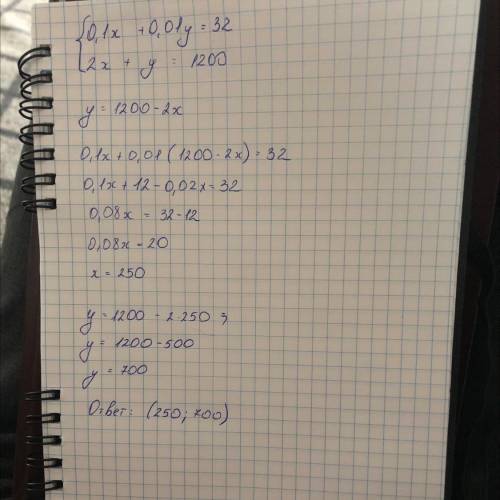 0,1x + 0,01y = 32
2x + y = 1200
y = 1200 - 2x
0,1x + 0,01 (1200 - 2x) = 32
0,1x + 12 - 0,02x = 32
0,08x = 32 - 12
0,08x - 20
x = 250
y = 1200 - 2·250 ;
y = 1200 - 500
y = 700
Ответ: (250; 700)